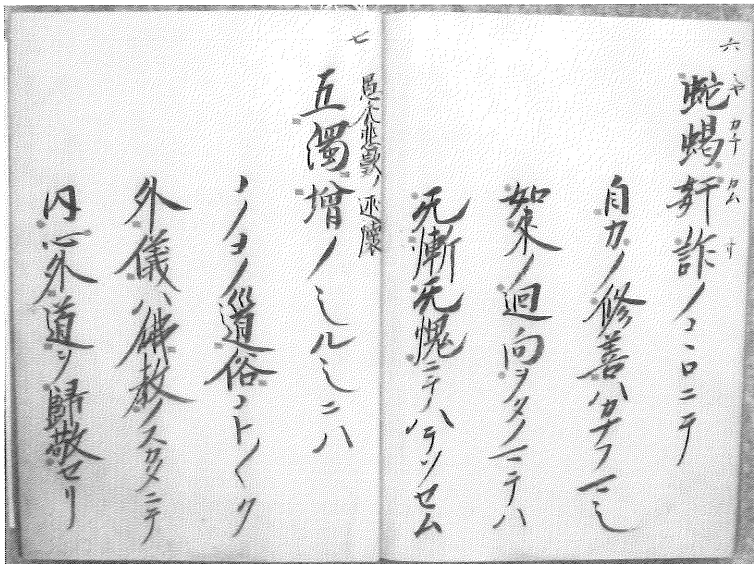 六
蛇蝎奸詐ノコヽロニテ
シヤ カチ カム サ
自力ノ修善ハカナフマシ
如来ノ廻向ヲタノマテハ
无慚无愧ニテハテソセム
七
愚禿悲歎ノ述懐
五濁増ノシルシニハ
コノヨノ道俗コト〳〵ク
外儀ハ佛教ノスカタニテ
内心外道ヲ歸敬セリ